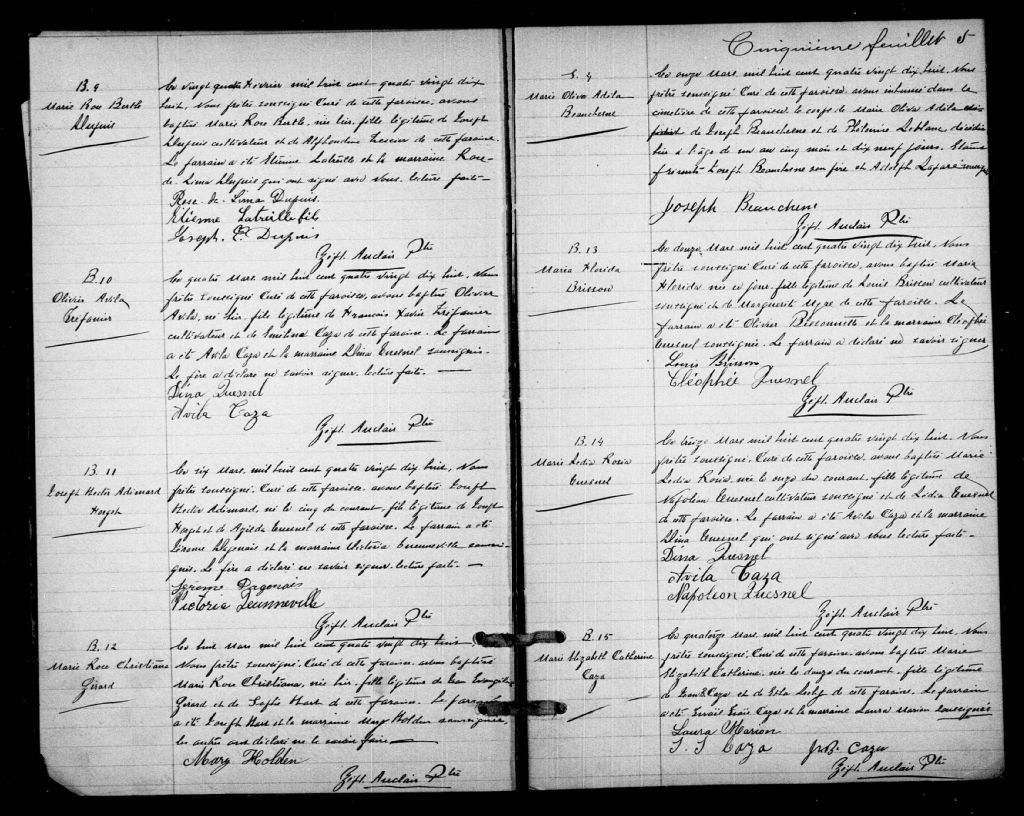 B. 9
Marie Rose Berthe
Dupuis
Ce vingt quatre Fevrier mil huit cent quatre vingt dix
huit, Nous prêtre soussigné Curé de cette paroisse, avons
baptisé Marie Rose Berthe, née hier, fille légitime de Joseph
Dupuis cultivateur et de Alphonsine de cette paroisse.
Le parrain a été Etienne Latreille et la marraine Rose-
de-Lima Dupuis qui ont signé avec Nous. lecture faite—
Rose de Lima Dupuis.
Etienne Latreille fils
Joseph E. Dupuis
Zépt. Auclair Ptre
B. 10
Olivier Avila
Trépanier
Ce quatre Mars, mil huit cent quatre vingt dix huit, Nous
prêtre soussigné Curé de cette paroisse, avons baptisé Olivier
Avila, né hier, fils légitime de Francois Xavier Trépanier
cultivateur et de Emélina Caza de cette paroisse. Le parrain
a été Avila Caza et la marraine Dina Quesnel soussignés.
Le père a déclaré ne savoir signer. lecture faite. —
Dina Quesnel
Avila Caza
Zépt. Auclair Ptre
B. 11
Joseph Hector Adémard
Ce six Mars, mil huit cent quatre vingt dix huit, Nous
prêtre soussigné, Curé de cette paroisse, avons baptisé Joseph
Hector Adémard, né le cinq du courant, fils légitime de Joseph
et de Agilda Quesnel de cette paroisse. Le parrain a été
Jérome Dagenais et la marraine Victoria Quenneville soussi-
gnés. Le père a déclaré ne savoir signer. lecture faite. —
Jerome Dagenais
Victoria Quenneville
Zépt. Auclair Ptre
B. 12
Marie Rose Christiana
Girard
Ce huit Mars mil huit cent quatre vingt dix huit
Nous prêtre soussigné, Curé de cette paroisse, avons baptisé
Marie Rose Christiana, née hier, fille légitime de Jean Evangéliste
Girard et de Sophie Hart de cette paroisse. Le parrain
a été Joseph Hart et la marraine Mary Holden soussignée,
les autres ont déclaré ne le savoir faire —
Mary Holden
Zépt. Auclair Ptre
Cinquième feuillet 5
S. 4
Marie Oliva Adila
Beauchesne
Ce onze Mars mil huit cent quatre vingt dix huit, Nous
prêtre soussigné Curé de cette paroisse, avons inhumé dans le
cimetière de cette paroisse le corps de Marie Oliva Adila
de Joseph Beauchesne et de Philomine Leblanc décédée
hier à l'âge de un an cinq mois et dix neuf jours. Etaient
présents Joseph Beauchesne son père et Adolph
Joseph Beauchene
Zépt. Auclair Ptre
B. 13
Maria Florida
Brisson
Ce douze Mars mil huit cent quatre vingt dix huit, Nous
prêtre soussigné Curé de cette paroisse, avons baptisé Maria
Florida née ce jour, fille légitime de Louis Brisson cultivateur
soussigné et de Marguerite Myre de cette paroisse. Le
parrain a été Olivier Bissonnette et la marraine Cléophée
Quesnel soussignée. Le parrain a déclaré ne savoir signer
Louis Brisson
Cléophée Quesnel
Zépt. Auclair Ptre
B. 14
Marie Lédia Rosia
Quesnel
Ce treize Mars mil huit cent quatre vingt dix huit. Nous
prêtre soussigné, Curé de cette paroisse, avons baptisé Marie
Lédia Rosia, née le onze du courant, fille légitime de
Napoléon Quesnel cultivateur soussigné et de Lédia Quesnel
de cette paroisse. Le parrain a été Avila Caza et la marraine
Dina Quesnel qui ont signé avec Nous lecture faite—
Dina Quesnel
Avila Caza
Napoléon Quesnel
Zépt. Auclair Ptre
B. 15
Marie Elizabeth Catherine
Caza
Ce quatorze Mars mil huit cent quatre vingt dix huit, Nous
prêtre soussigné, Curé de cette paroisse, avons baptisé Marie
Elizabeth Catherine, née le douze du courant, fille légitime
de Jean B. Caza et de de cette paroisse. Le parrain
a été Caza et la marraine Laura Marion soussignés
Laura Marion
J. J Caza J.B. Caza
Zépt. Auclair Ptre